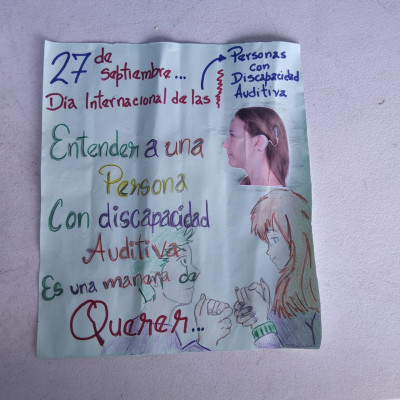 27 de septiembre...
Día Internacional de las
Personas
con
Discapacidad
Auditiva
Entender a una
Persona
Con discapacidad
Auditiva
Es una manera de
Querer...